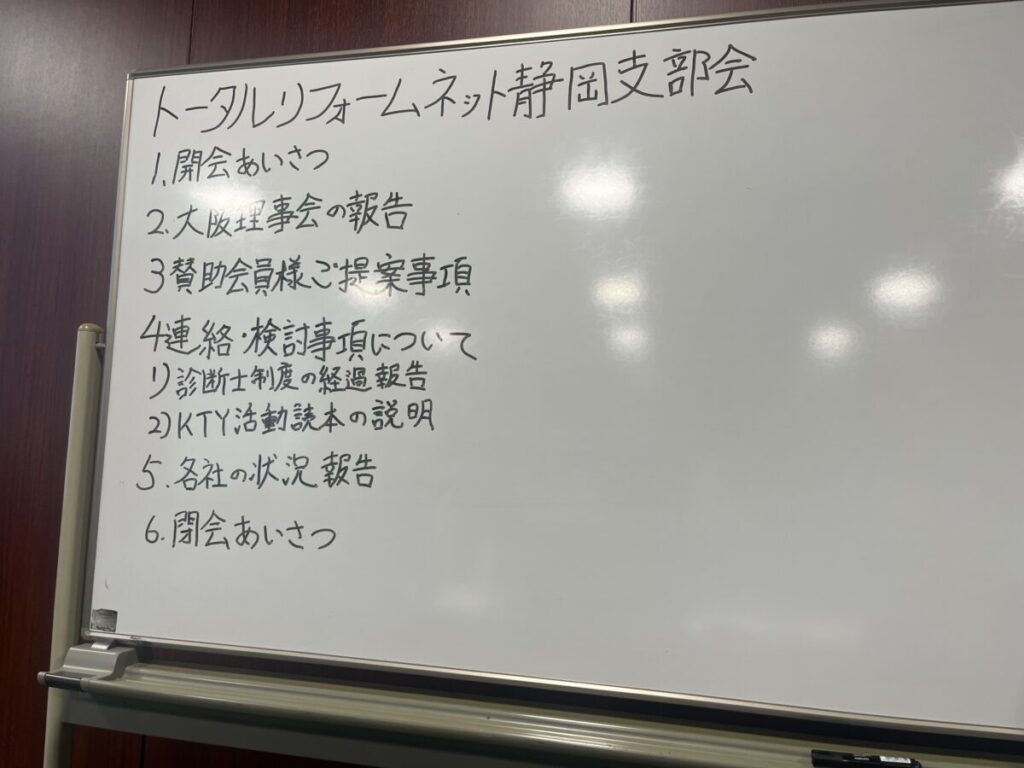 トータルリフォームネット静岡支部会
1. 開会あいさつ
2. 大阪理事会の報告
3 賛助会員様ご提案事項
4 連絡・検討事項について
1) 診断士制度の経過報告
2) KTY活動読本の説明
5. 各社の状況報告
6. 閉会あいさつ